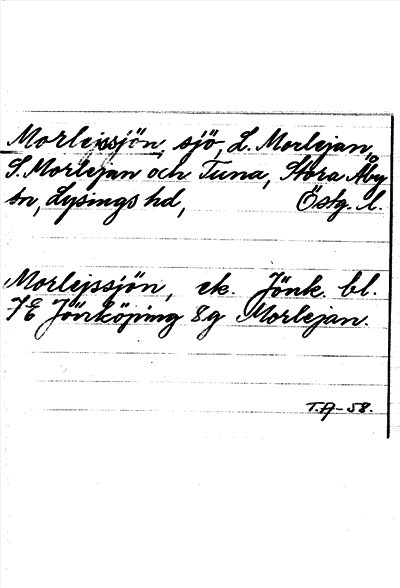 Morlejssjön, sjö, L. Morlejan,
S. Morlejan och Tuna, Stora Åby
sn, Lysings hd, Östg. l.
Morlejssjön, ek. Jönk. bl.
7E Jönköping 8g Morlejan.
T.A-58.